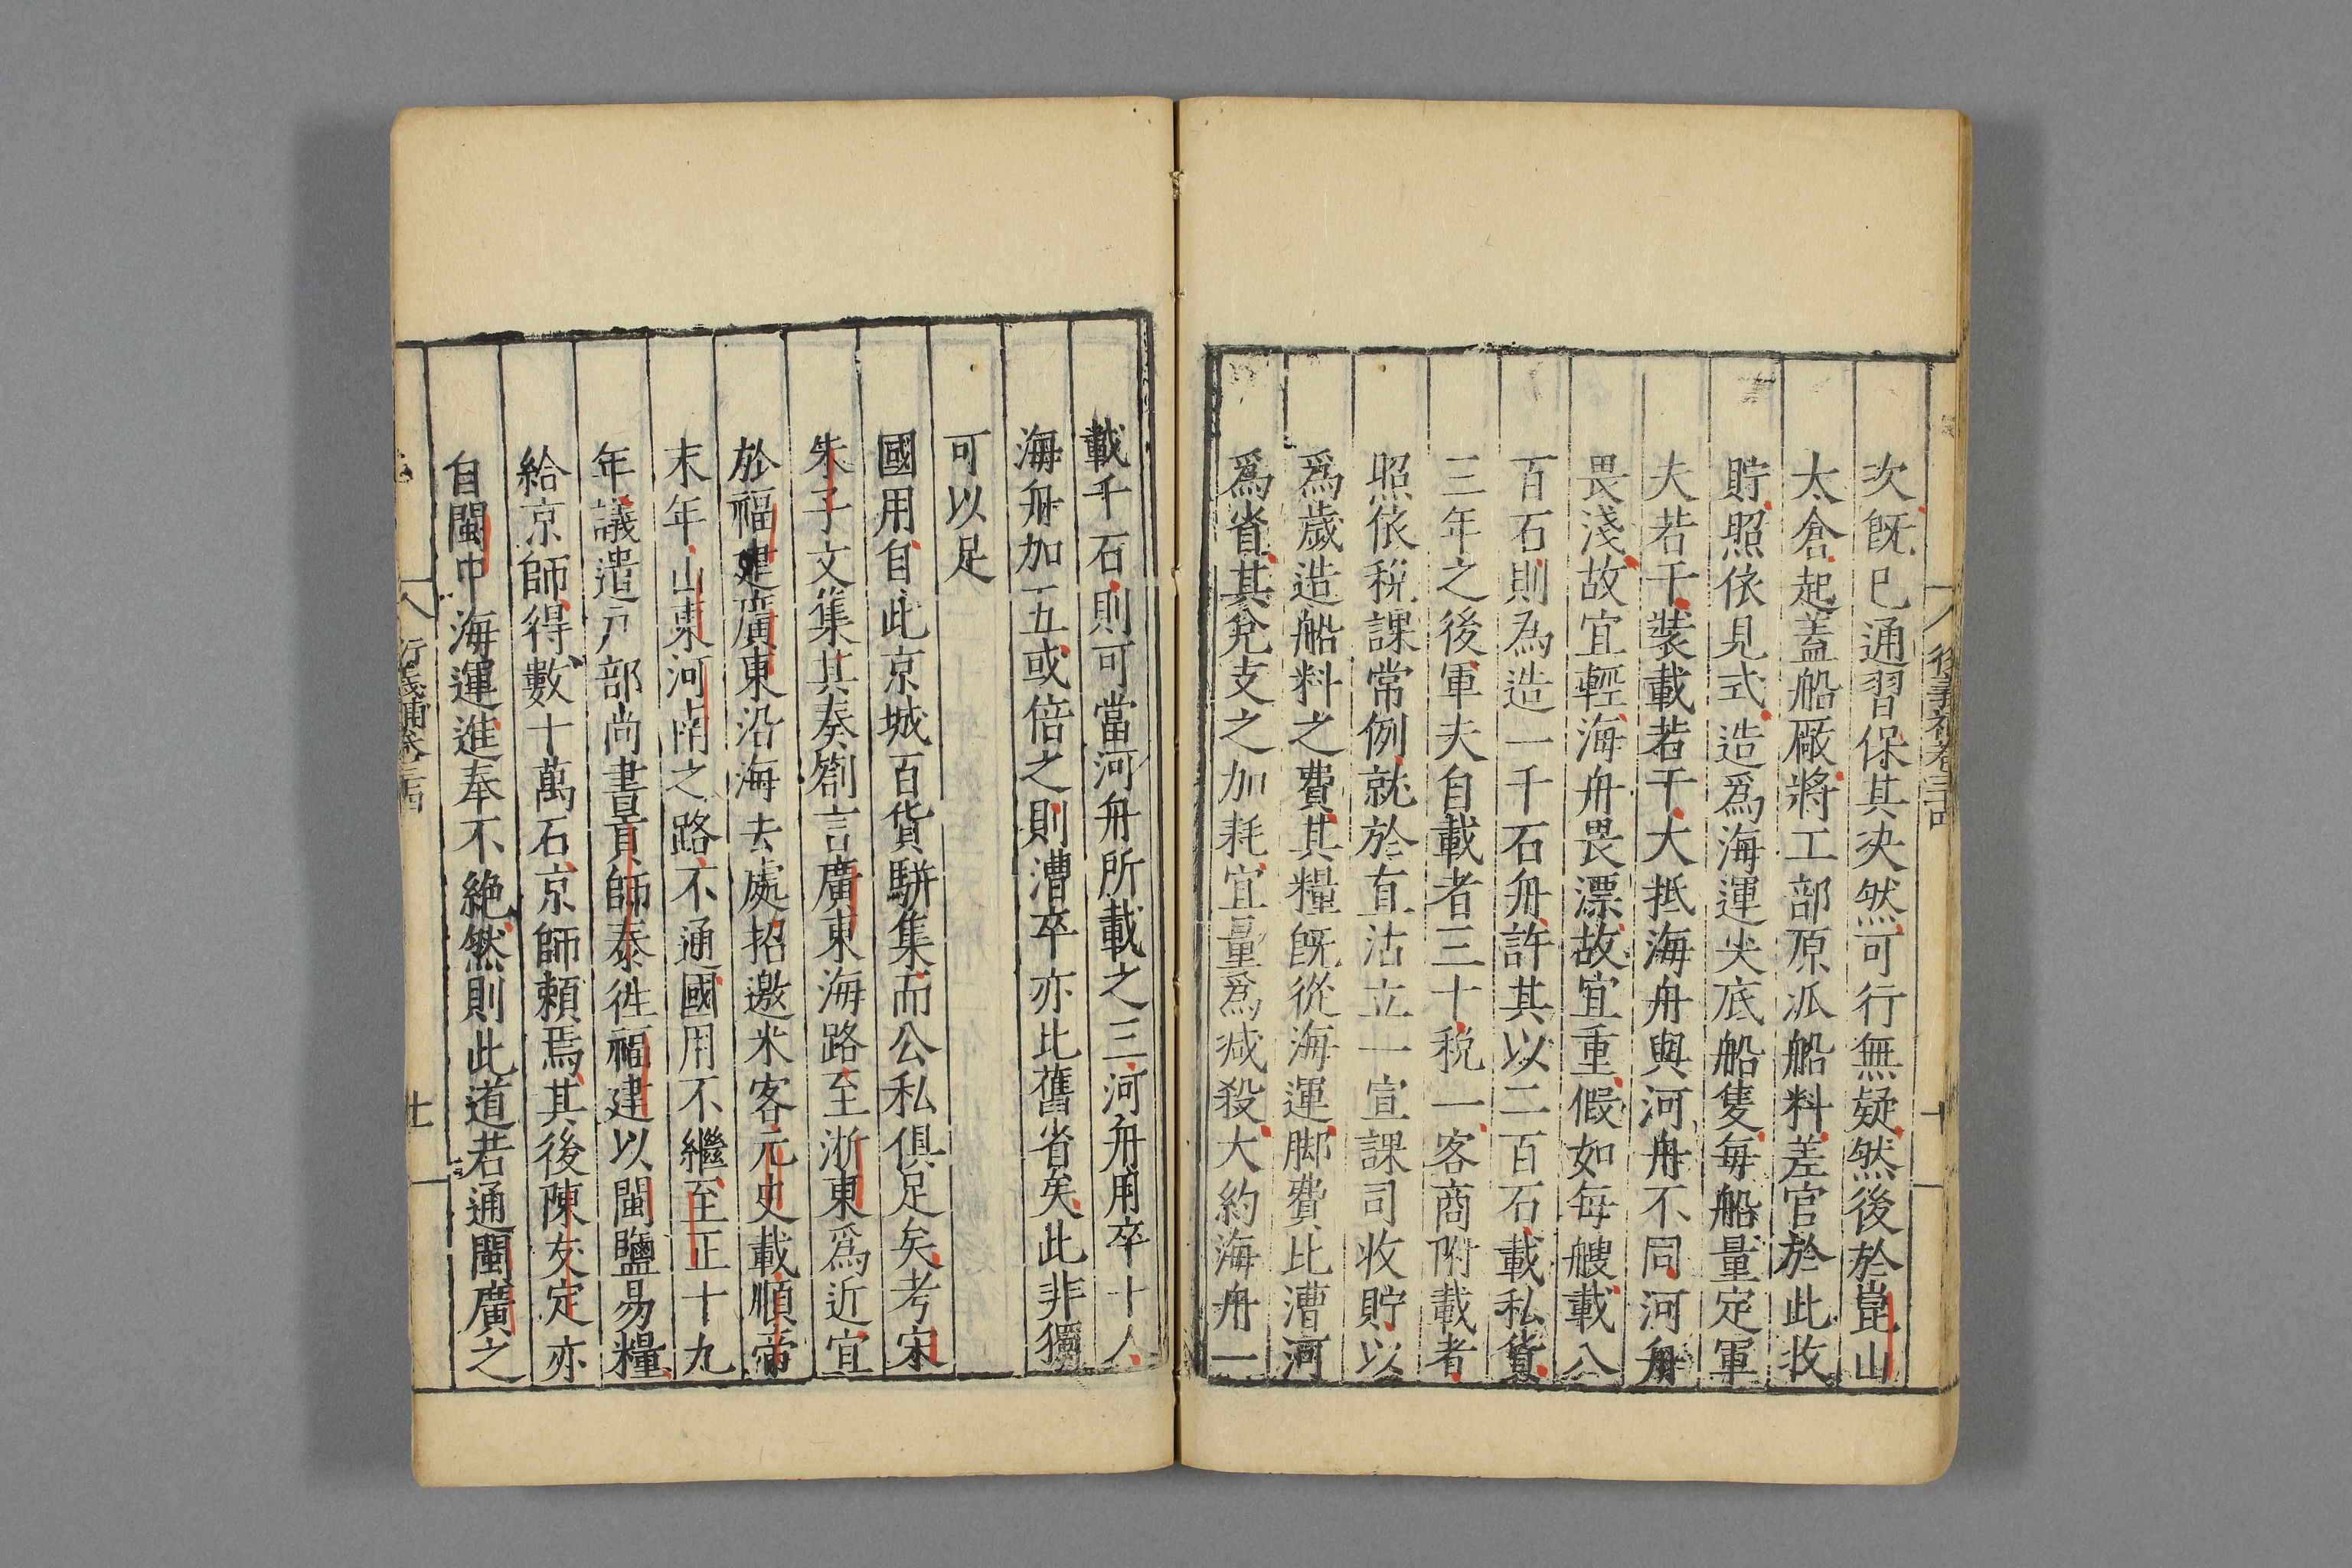 次既已通習保其決然可行無疑然後於崑山
太倉起蓋船厰將工部原派船料差官於此收
貯照依見式造爲海運尖底船隻每船量定軍
夫若干裝載若干大抵海舟與河舟不同河舟
畏淺故宜輕海舟畏漂故宜重假如每艘載八
百石則為造一千石舟許其以二百石載私貨
三年之後軍夫自載者三十税一客商附載者
照依稅課常例就於直沽立一宣課司收貯以
爲歲造船料之費其糧既從海運脚費比漕河
爲省其兌支之加耗宜量爲减殺大約海舟一
載千石則可當河舟所載之三河舟用卒十人
海舟加五或倍之則漕卒亦比舊省矣此非獨
可以足
國用自此京城百貨駢集而公私俱足矣考宋
朱子文集其奏劄言廣東海路至浙東爲近宜
於福建廣東沿海去處招邀米客元史載順帝
末年山東河南之路不通國用不繼至正十九
年議遣戸部尚書貢師泰徃福建以閩鹽易糧
給京師得數十萬石京師頼焉其後陳友定亦
自閩中海運進奉不絶然則此道若通閩廣之